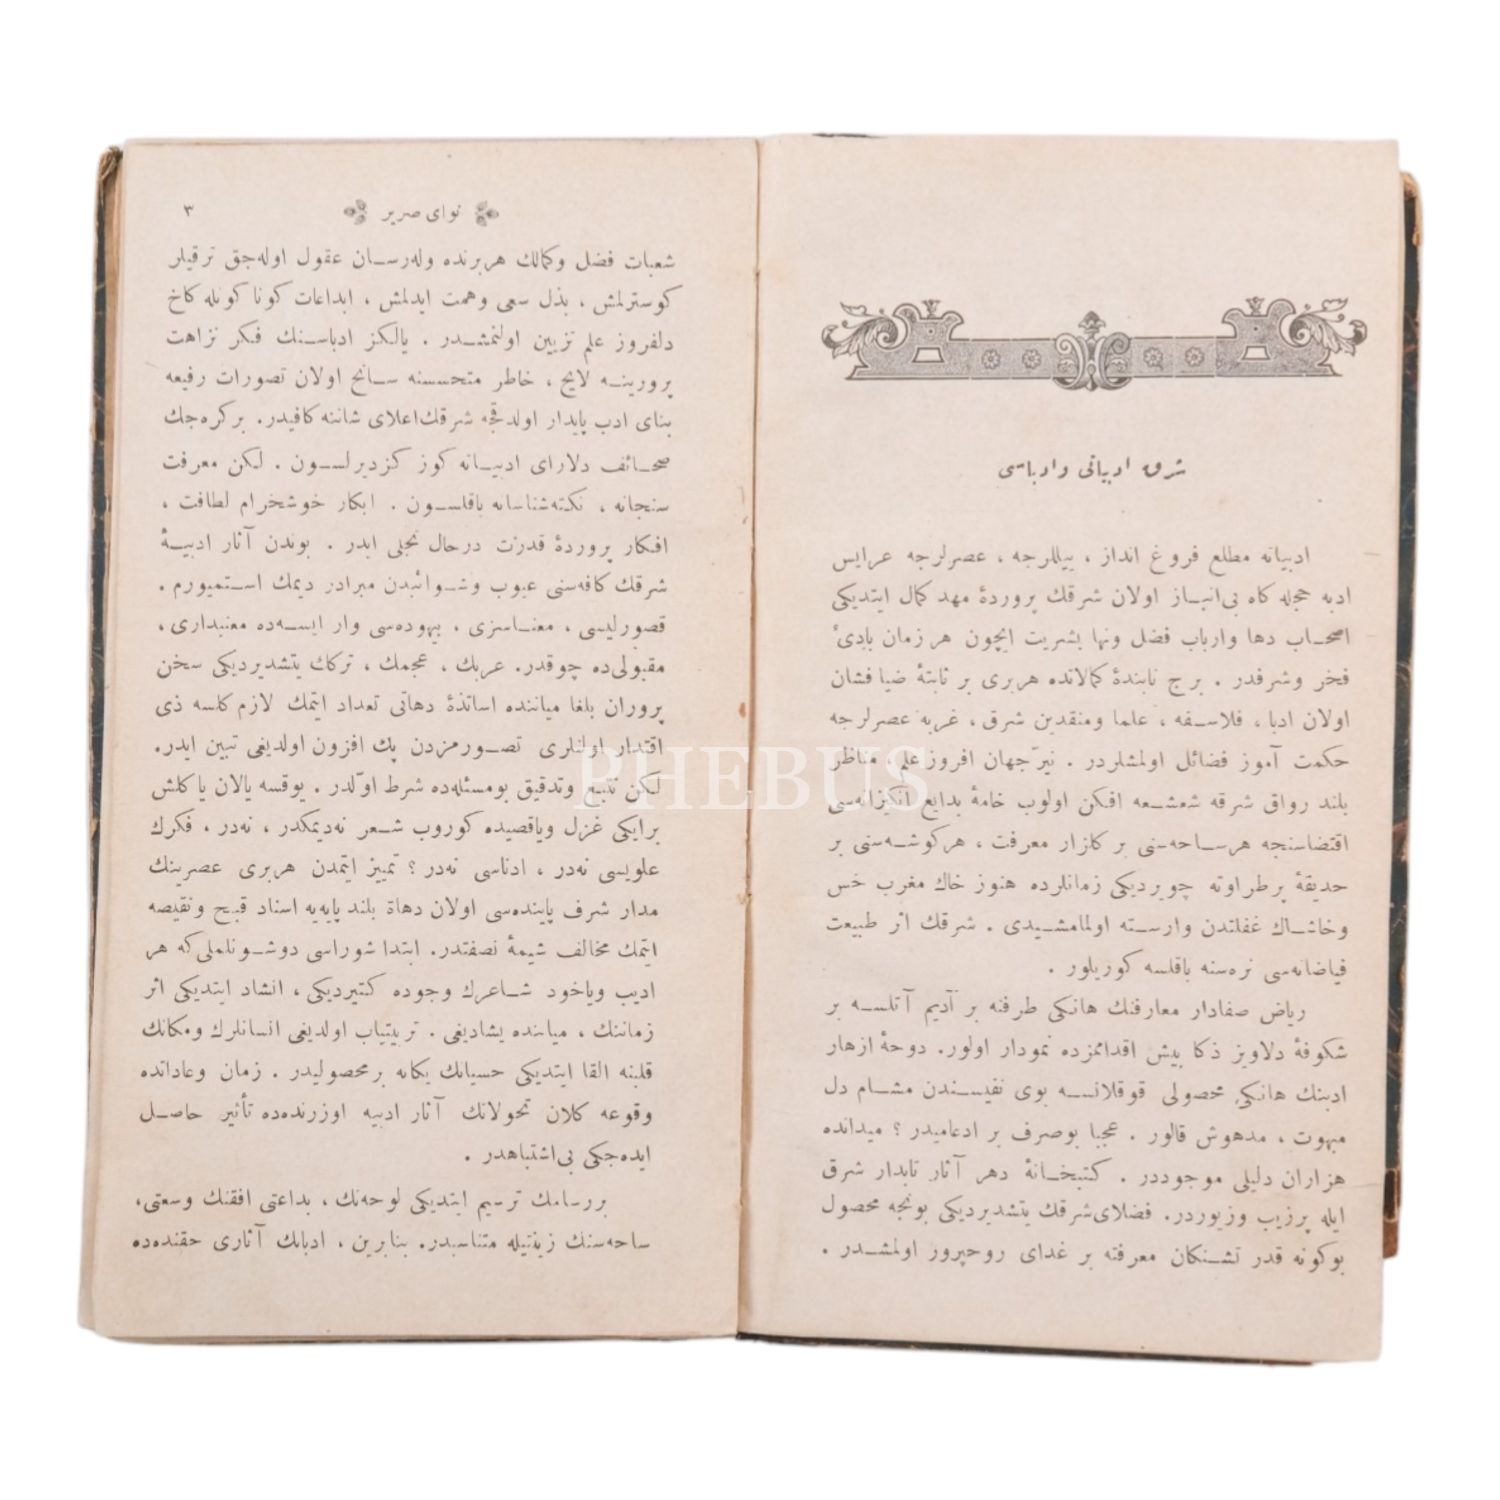 شرق ادبیاتی وادباسی
ادبیانه مطلع فروغ انداز ، بیللرجه ، عصرلرجه عرایس
ادبه حجله کاه بی‌انباز اولان شرقك پروردۀ مهد کمال ایتدیکی
اصحاب دها وارباب فضل ونها بشریت ایچون هر زمان بادیٔ
فخر وشرفدر . برج تابندۀ کمالاتده هربری بر ثابتۀ ضیا فشان
اولان ادبا ، فلاسفه ، علما ومنقدین شرق ، غربه عصرلرجه
حکمت آموز فضائل اولمشلردر . نیّر جهان افروز علم مناظر
بلند رواق شرقه شعشعه افکن اولوب خامۀ بدایع انکیزانه‌سی
اقتضاسنجه هرساحه‌سنی بر کلزار معرفت ، هرکوشه‌سنی بر
حدیقۀ پرطراوته چویردیکی زمانلرده هنوز خاك مغرب خس
وخاشاك غفلتدن وارسته اولمامشیدی . شرقك اثر طبیعت
فیاضانه‌سی نره‌سنه باقلسه کوریلور .
ریاض صفادار معارفنك هانکی طرفنه بر آدیم آتلسه بر
شکوفۀ دلاویز ذکا پیش اقدامزده نمودار اولور. دوحۀ ازهار
ادبنك هانکی محصولی قوقلانسه بوی نفیسندن مشام دل
مبهوت ، مدهوش قالور . عجبا بوصرف بر ادعامیدر ؟ میدانده
هزاران دلیلی موجوددر . کتبخانۀ دهر آثار تابدار شرق
ایله پرزیب وزیوردر. فضلای‌شرقك یتشدیردیکی بونجه محصول
بوکونه قدر تشنکان معرفته بر غدای روحپرور اولمشدر .
نوای صریر
٣
شعبات فضل وکمالك هربرنده وله‌رسان عقول اوله‌جق ترقیلر
کوسترلمش ، بذل سعی وهمت ایدلمش ، ابداعات کونا کونله کاخ
دلفروز علم تزیین اولنمشدر . یالکز ادباسنك فکر نزاهت
پرورینه لایح ، خاطر متحسسنه سانح اولان تصورات رفیعه
بنای ادب پایدار اولدقجه شرقك‌اعلای شاننه کافیدر. برکره‌جك
صحائف دلارای ادبیانه کوز کزدیرلسون . لکن معرفت
سنجانه ، نکته‌شناسانه باقلسون . ابکار خوشخرام لطافت ،
افکار پروردۀ قدرت درحال تجلی ایدر . بوندن آثار ادبیۀ
شرقك کافه‌سنی عیوب وشوائبدن مبرادر دیمك استمیورم .
قصورلیسی ، معناسزی ، بیهوده‌سی وار ایسه‌ده معنیداری ،
مقبولی‌ده چوقدر. عربك ، عجمك ، ترکك یتشدیردیکی سخن
پروران بلغا میاننده اساتذۀ دهاتی تعداد ایتمك لازم کلسه ذی
اقتدار اولنلری تصورمزدن پك افزون اولدیغی تبین ایدر.
لکن تتبع وتدقیق بومسئله‌ده شرط اوّلدر . یوقسه یالان یاکلش
برایکی غزل ویاقصیده کوروب شعر نه‌دیمکدر ، نه‌در ، فکرك
علویسی نه‌در ، ادناسی نه‌در ؟ تمییز ایتمدن هربری عصرینك
مدار شرف پاینده‌سی اولان دهاة بلند پایه‌یه اسناد قبح ونقیصه
ایتمك مخالف شیمۀ نصفتدر. ابتدا شوراسی دوشونلملی‌که هر
ادیب ویاخود شاعرك وجوده کتیردیکی ، انشاد ایتدیکی اثر
زماننك ، میاننده یشادیغی . تربیتیاب اولدیغی انسانلرك ومکانك
قلبنه القا ایتدیکی حسیاتك یکانه برمحصولیدر . زمان وعاداتده
وقوعه کلان تحولاتك آثار ادبیه اوزرنده‌ده تأثیر حاصل
ایده‌جکی بی‌اشتباهدر .
بررسامك ترسیم ایتدیکی لوحه‌نك ، بداعتی افقنك وسعتی،
ساحه‌سنك زینتیله متناسبدر. بنابرین ، ادبانك آثاری حقنده‌ده
PHEBUS